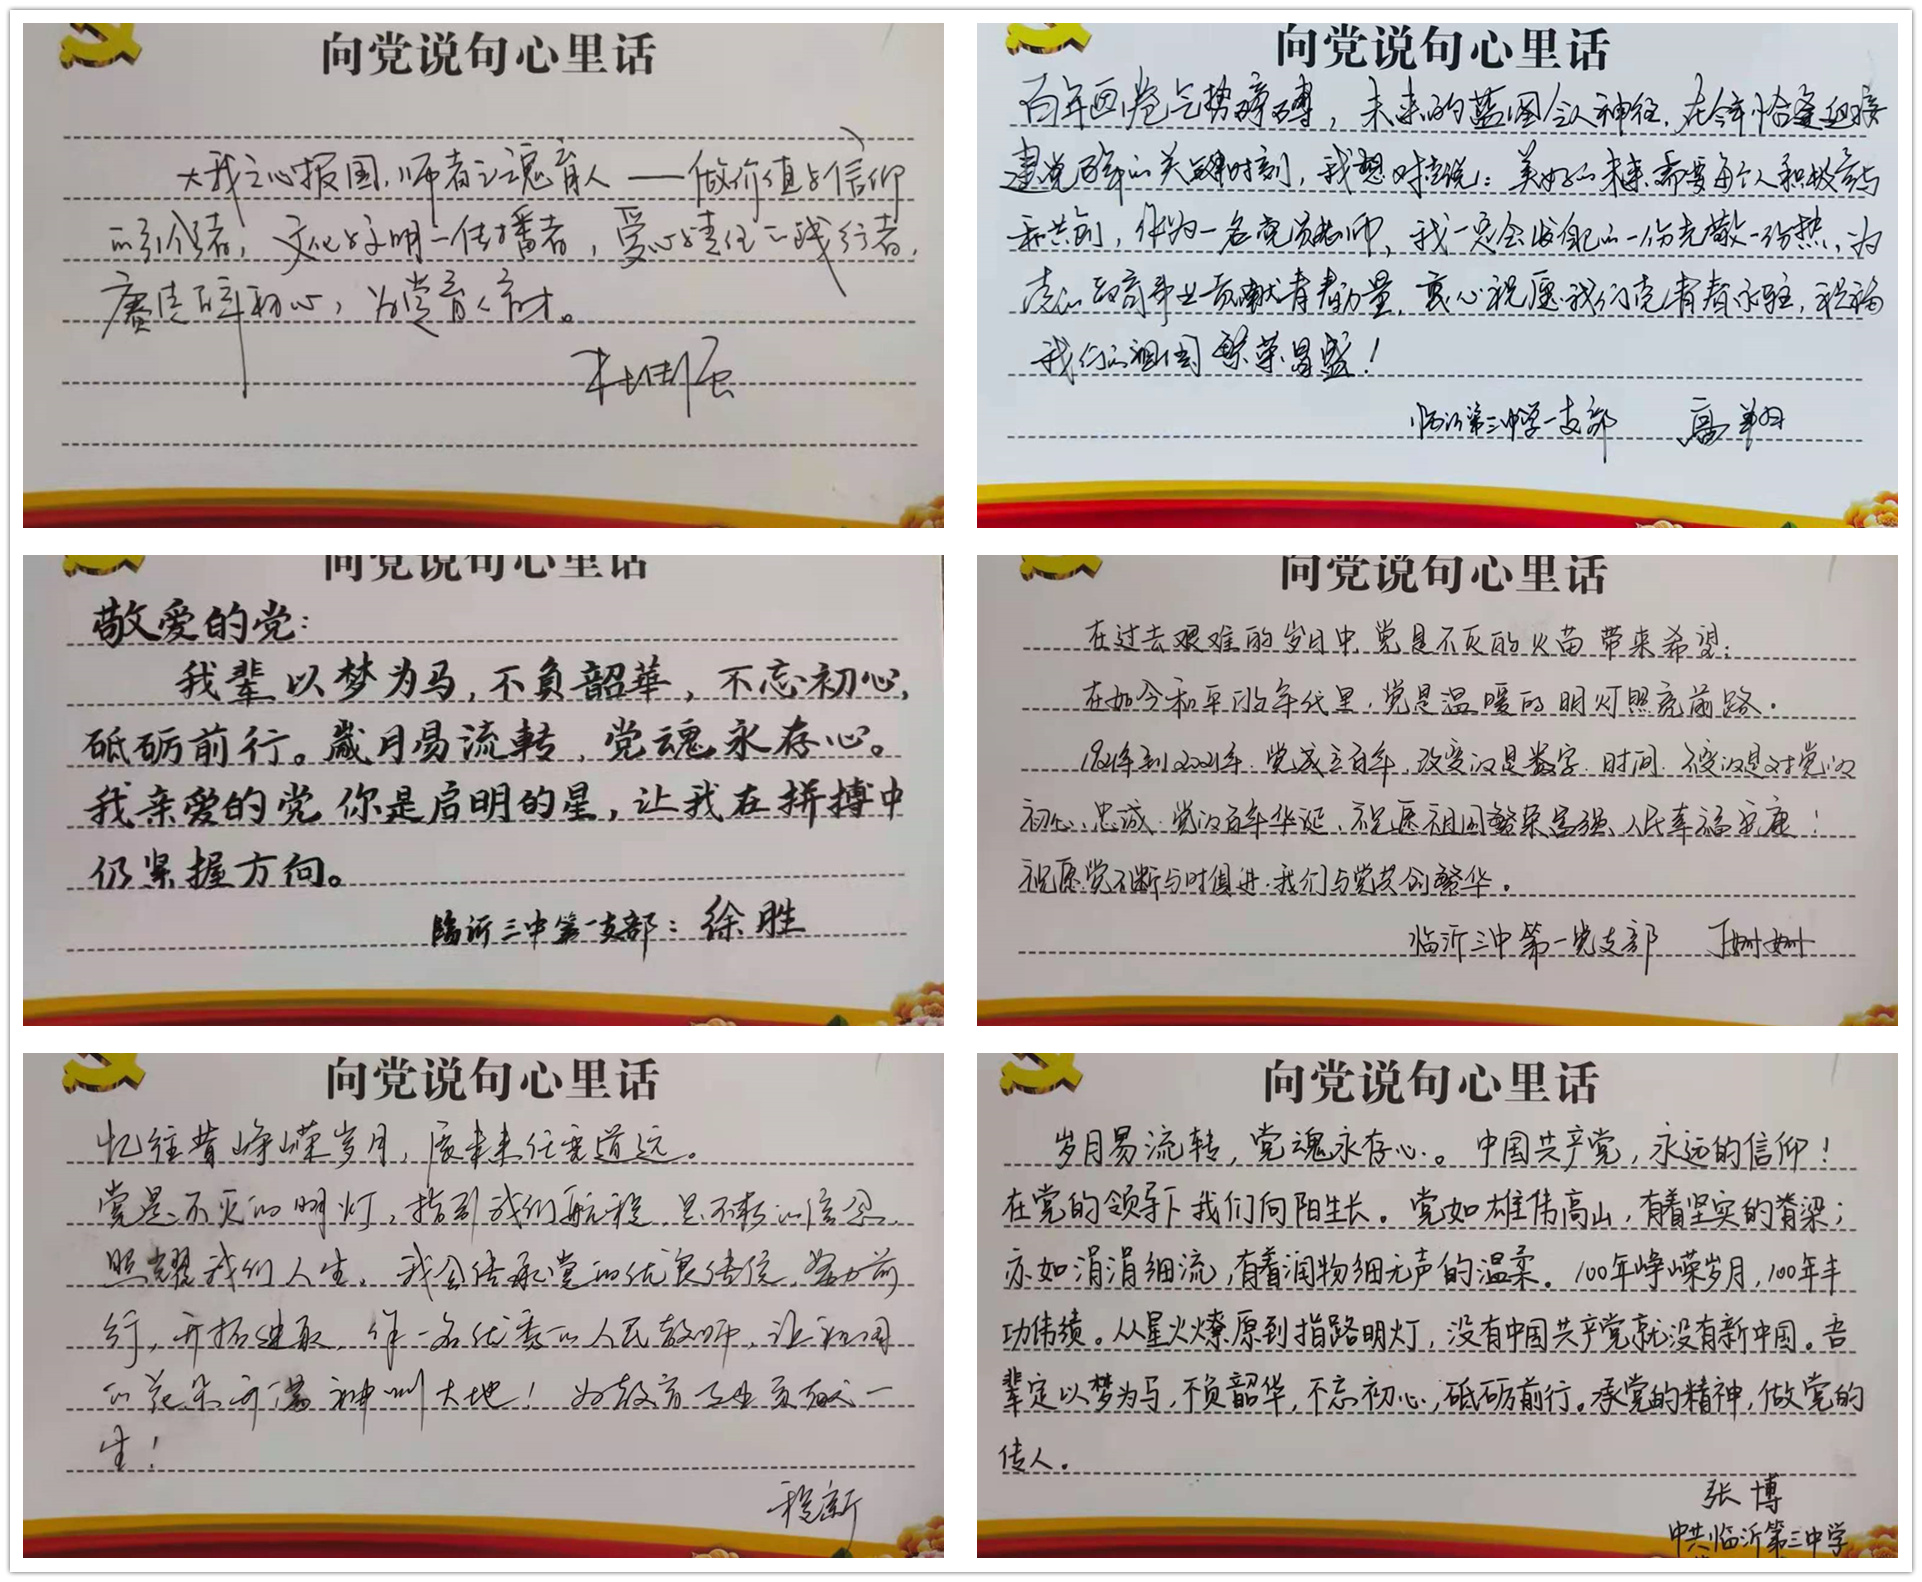 向党说句心里话
大我之心报国,师者之魂育人——做价值与信仰
的引领者,文化与文明一传播者,爱心与责任的践行者,
赓续百年初心,为党育人育才。
向党说句心里话
百年画卷气势磅礴,未来的蓝图令人神往,在今年恰逢迎接
建党百年的关键时刻,我想对党说:美好的未来需要每个人积极参与
和共创,作为一名党员教师,我一定会发自己的一份光散一份热,为
党的教育事业贡献青春力量,衷心祝愿我们党青春永驻,祝福
我们的祖国繁荣昌盛!
临沂第三中学一支部 高翔
向党说句心里话
敬爱的党:
我辈以梦为马,不负韶華,不忘初心,
砥砺前行。歲月易流转,党魂永存心。
我亲爱的党 你是启明的星,让我在拼搏中
仍紧握方向。
临沂三中第一支部:徐胜
向党说句心里话
在过去艰难的岁月中,党是不灭的火苗带来希望;
在如今和平的年代里,党是温暖的明灯照亮前路.
1921年到2021年,党成立百年,改变的是数字、时间,不变的是对党的
初心、忠诚.党的百年华诞,祝愿祖国繁荣富强,人民幸福安康!
祝愿党不断与时俱进,我们与党共创繁华.
临沂三中第一党支部 丁姗姗
向党说句心里话
忆往昔峥嵘岁月,展未来任重道远。
党是不灭的明灯,指引我们航程,是不转的信念,
照耀我们人生,我会传承党的优良传统,努力前
行,开拓进取,作一名优秀的人民教师,让祖国
的花朵开满神州大地!为教育事业贡献一
生!
程新
向党说句心里话
岁月易流转,党魂永存心。中国共产党,永远的信仰!
在党的领导下我们向阳生长。党如雄伟高山,有着坚实的脊梁;
亦如涓涓细流,有着润物细无声的温柔。100年峥嵘岁月,100年丰
功伟绩。从星火燎原到指路明灯,没有中国共产党就没有新中国。吾
辈定以梦为马,不负韶华,不忘初心,砥砺前行。承党的精神,做党的
传人。
张博
中共临沂第三中学